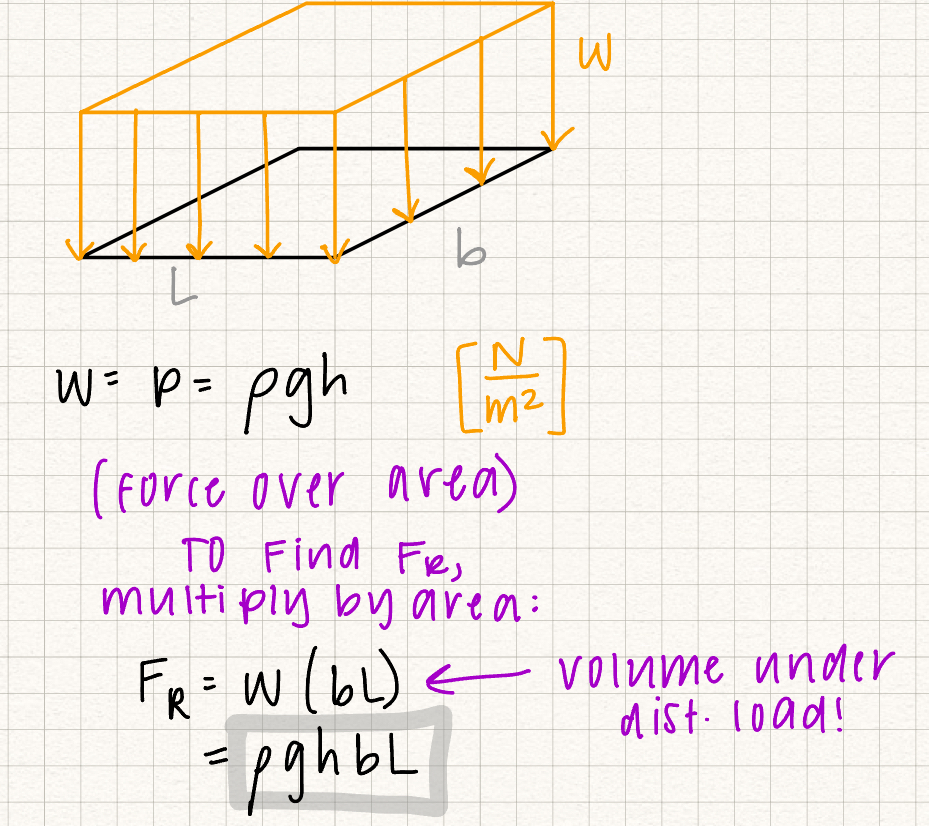 W
b
L
W = P = ρgh [N/m²]
(Force over area)
To Find F_R,
multiply by area:
F_R = W (bL) ← volume under
dist. load!
= ρghbL